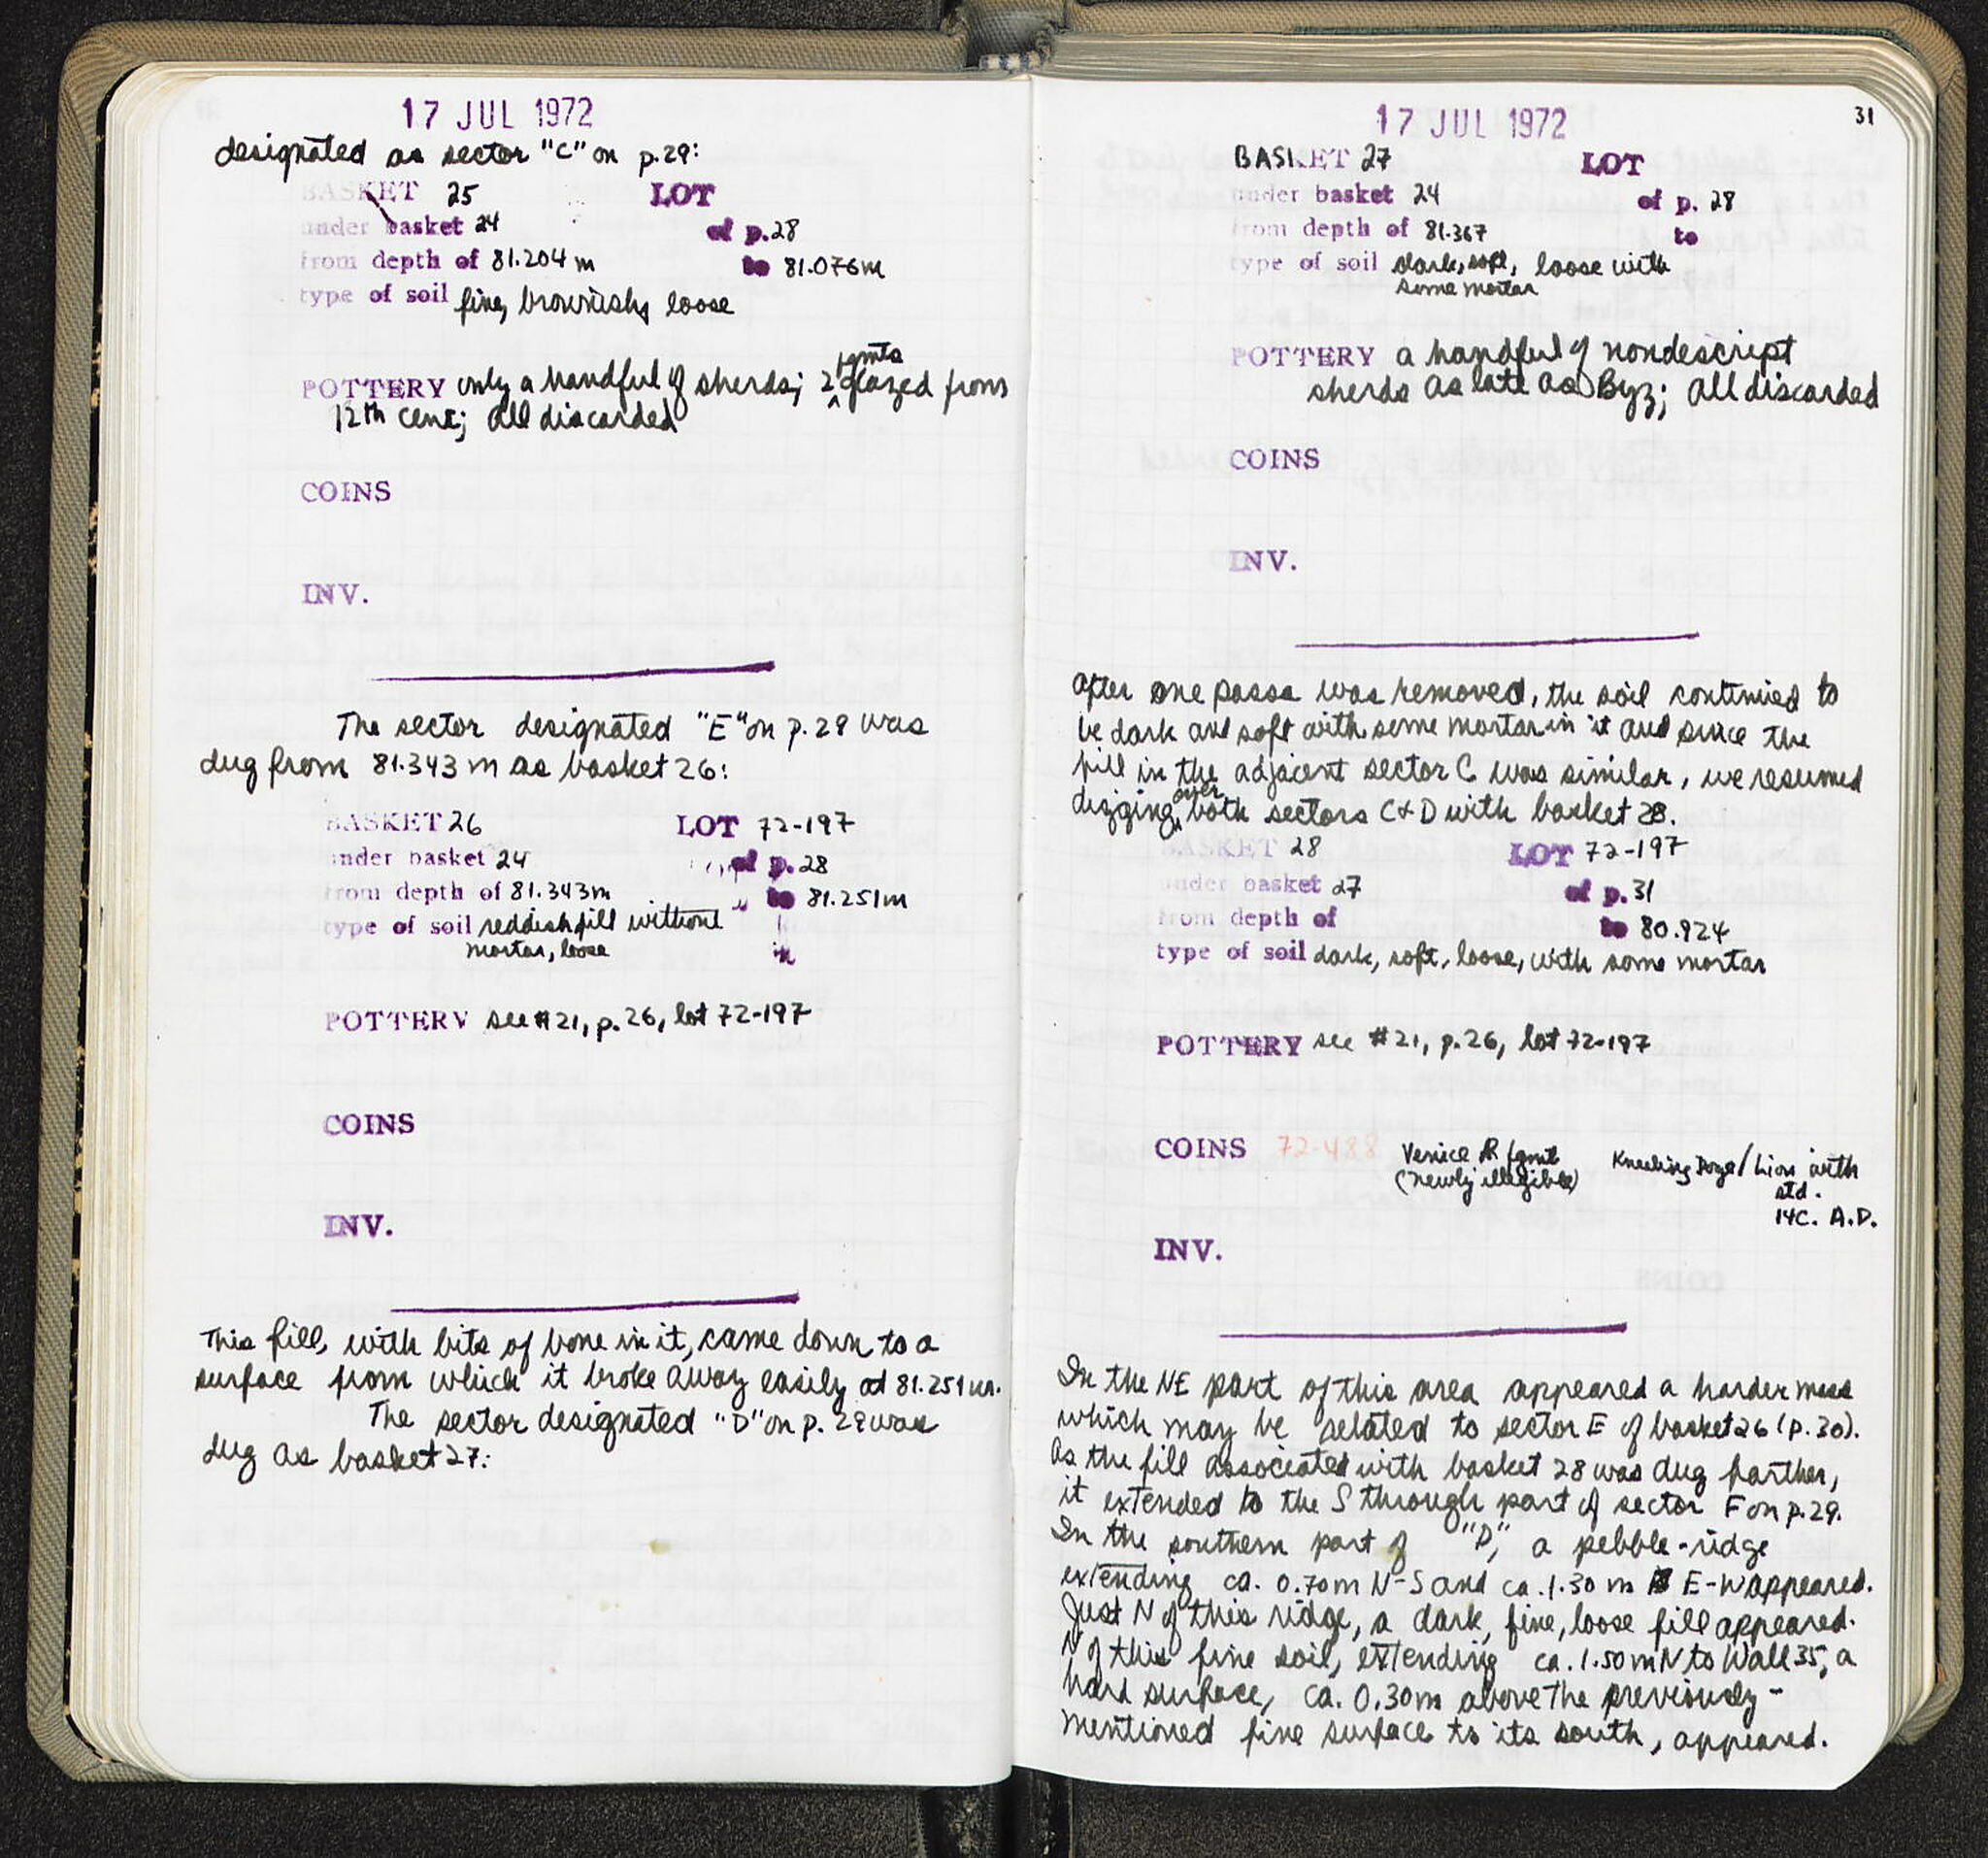 17 JUL 1972
designated as sector "C" on p.29:
BASKET 25 LOT
under basket 24 of p.28
from depth of 81.204 m to 81.076m
type of soil fine, brownish, loose
POTTERY only a handful of sherds; 2 fgmts glazed from
12th cent; all discarded
COINS
INV.
The sector designated "E" on p.29 was
dug from 81.343 m as basket 26:
BASKET 26 LOT 72-197
under basket 24 of p.28
from depth of 81.343m to 81.251m
type of soil reddish fill without
mortar, loose
POTTERY see #21, p.26, lot 72-197
COINS
INV.
This fill, with bits of bone in it, came down to a
surface from which it broke away easily at 81.251 m.
The sector designated "D" on p.29 was
dug as basket 27:
31
17 JUL 1972
BASKET 27 LOT
under basket 24 of p. 28
from depth of 81.367 to
type of soil dark, soft, loose with
some mortar
POTTERY a handful of nondescript
sherds as late as Byz; all discarded
COINS
INV.
After one passa was removed, the soil continued to
be dark and soft with some mortar in it and since the
fill in the adjacent sector C was similar, we resumed
digging over both sectors C+D with basket 28.
BASKET 28 LOT 72-197
under basket 27 of p.31
from depth of to 80.924
type of soil dark, soft, loose, with some mortar
POTTERY see #21, p.26, lot 72-197
COINS 72-488 Venice AR fgmt Kneeling Doge/Lion with
(newly illegible) std.
14C. A.D.
INV.
In the NE part of this area appeared a harder mass
which may be related to sector E of basket 26 (p.30).
As the fill associated with basket 28 was dug farther,
it extended to the S through part of sector F on p.29.
In the southern part of "D", a pebble-ridge
extending ca. 0.70m N-S and ca. 1.30 m E-W appeared.
Just N of this ridge, a dark, fine, loose fill appeared.
N of this fine soil, extending ca. 1.50m N to Wall 35, a
hard surface, ca. 0.30m above the previously-
mentioned fine surface to its south, appeared.